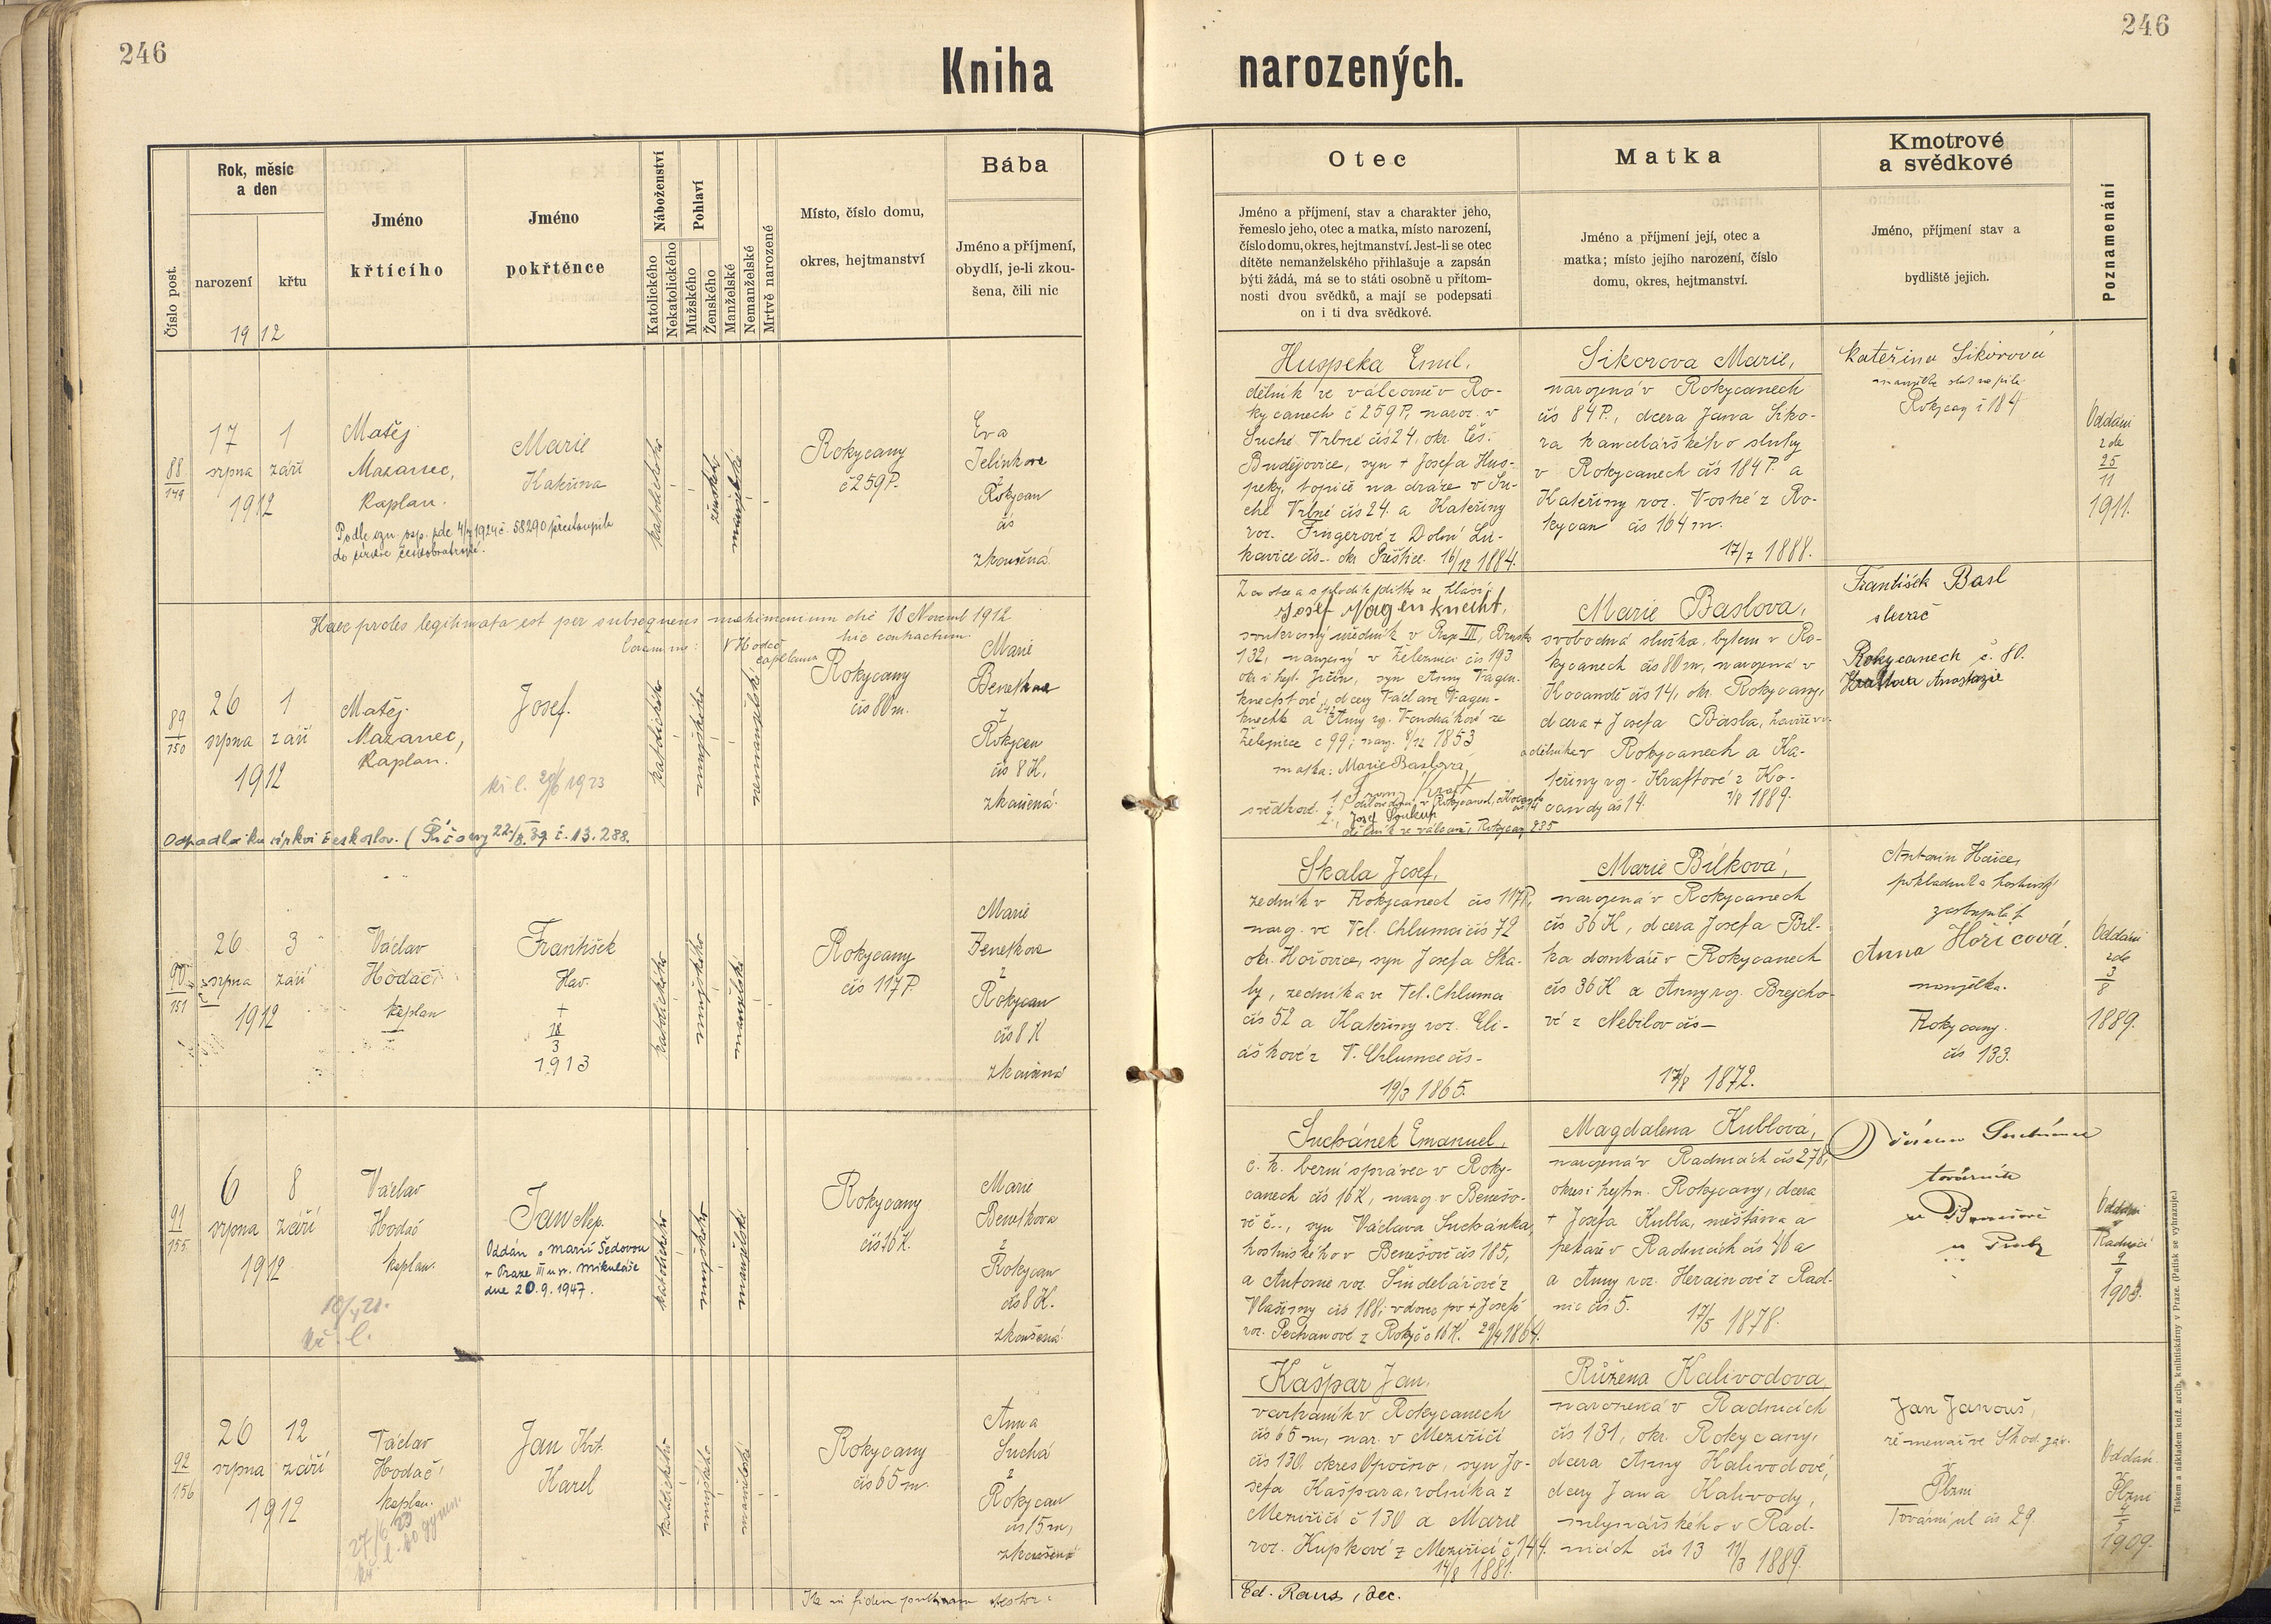 246
246
Kniha
narozených.
Číslo post.
Rok, měsíc
a den
narození
křtu
19 12
Jméno
křtícího
Jméno
pokřtěnce
Náboženství
Katolického
Nekatolického
Pohlaví
Mužského
Ženského
Manželské
Nemanželské
Mrtvě narozené
Místo, číslo domu,
okres, hejtmanství
Bába
Jméno a příjmení,
obydlí, je-li zkou-
šena, čili nic
Otec
Jméno a příjmení, stav a charakter jeho,
řemeslo jeho, otec a matka, místo narození,
číslo domu, okres, hejtmanství. Jest-li se otec
dítěte nemanželského přihlašuje a zapsán
býti žádá, má se to státi osobně u přítom-
nosti dvou svědků, a mají se podepsati
on i ti dva svědkové.
Matka
Jméno a příjmení její, otec a
matka; místo jejího narození, číslo
domu, okres, hejtmanství.
Kmotrové
a svědkové
Jméno, příjmení stav a
bydliště jejich.
Poznamenání
88
149
17
srpna
1912
1
září
Matěj
Mazanec,
kaplan.
Marie
Kateřina
katolického
ženského
manželské
Rokycany
č 259 P.
Eva
Jelínkova
z
Rokycan
čís
zkoušená
Huspeka Emil,
dělník ve válcovně v Ro-
kycanech č 259 P, naroz. v
Suché Vrbné čís 24, okr. Čes.
Budějovice, syn + Josefa Hus-
peky, topiče na dráze v Su-
ché Vrbné čís 24. a Kateřiny
roz. Fingerové z Dolní Lu-
kavice čís - okr Přeštice. 16/12 1884.
Sikorova Marie,
narozená v Rokycanech
čís 84 P., dcera Jana Siko-
ra kancelářského sluhy
v Rokycanech čís 184 P. a
Kateřiny roz. Voské z Ro-
kycan čís 164 m.
17/7 1888.
Kateřina Sikorová
Rokycany č 184
Oddáni
zde
25
11
1911.
Haec proles legitimata est per subsequens matrimonium die 18 Novemb 1912
hic contractum.
V Hodač
capellanus
89
150
26
srpna
1912
1
září
Matěj
Mazanec,
kaplan.
Josef.
kř. l. 1923
katolického
mužského
nemanželské
Rokycany
čís 80 m.
Marie
Beneškova
z
Rokycan
čís 8 K,
zkoušená.
Odpadl ku církvi českoslov. (Říčany
č. 13.288.
Josef Vagenknecht,
132, narozený v Železnici čís 193
okr i hejt. Jičín, syn Anny Vagen-
knechtové, dcery Václava Vagen-
knechta a Anny roz. Vondrákové ze
Železnice č 99; naroz. 8/12 1853
matka: Marie Baslová
svědkové:
2. Josef Soukup
dělník ve válcovně, Rokycany 235
Marie Baslova,
svobodná služka, bytem v Ro-
kycanech čís 80 m, narozená v
Kocandě čís 14, okr. Rokycany,
dcera + Josefa Basla,
dělníka v Rokycanech a Ka-
teřiny roz. Kraftové z Ko-
candy čís 14. 7/8 1889.
František Basl
slevač
Rokycanech č. 80.
Kraftova Anastazie
90
151
26
srpna
1912
3
září
Václav
Hodač
kaplan
František
Hav.
+
18
3
1913
katolického
mužského
manželské
Rokycany
čís 117 P.
Marie
Beneškova
z
Rokycan
čís 8 K
zkoušená
Skala Josef,
zedník v Rokycanech čís 117 P,
naroz. ve Vel. Chlumci čís 72
okr. Hořovice, syn Josefa Ska-
ly, zedníka ve Vel. Chlumci
čís 52 a Kateřiny roz. Eli-
áškové z V. Chlumce čís -
19/3 1865.
Marie Bílková,
narozená v Rokycanech
čís 36 K, dcera Josefa Bíl-
ka domkáře v Rokycanech
čís 36 K a Anny roz. Brejcho-
vé z Nebílov čís -
17/8 1872.
Antonín Hořice,
Anna Hořicová
manželka.
Rokycany
čís 133.
Oddáni
zde
3
8
1889.
91
155
6
srpna
1912
8
září
Václav
Hodač
kaplan.
kř. l.
Jan Nep.
Oddán s Marií Šedovou
v Praze III u sv. Mikuláše
dne 20.9.1947.
katolického
mužského
manželské
Rokycany
čís 16 K.
Marie
Beneškova
z
Rokycan
čís 8 K.
zkoušená
Suchánek Emanuel,
c. k. berní správec v Roky-
canech čís 16 K, naroz. v Benešo-
vě č.., syn Václava Suchánka,
hostinského v Benešově čís 185,
a Antonie roz. Šindelářové z
Vlašimy čís 188; vdovec po + Josefě
roz. Pechanové z Rokyc č 16 K. 29/4 1864.
Magdalena Kublová,
narozená v Radnicích čís 278,
okres i hejtm. Rokycany, dcera
+ Josefa Kubla, měšťana a
pekaře v Radnicích čís 46 a
a Anny roz. Herainové z Rad-
nic čís 5. 17/5 1878.
továrník
Oddáni
Radnicí
9
9
1903.
92
156
26
srpna
1912
12
září
Václav
Hodač,
kaplan.
27/6 23
Jan Kř.
Karel
katolického
mužského
manželské
Rokycany
čís 65 m.
Anna
Suchá
z
Rokycan
čís 15 m,
zkoušená
Kašpar Jan,
varhaník v Rokycanech
čís 65 m, nar. v Meziříčí
čís 130. okres Opočno, syn Jo-
sefa Kašpara, rolníka z
Meziříčí č 130 a Marie
roz. Kupkové z Meziříčí č 144.
14/8 1881.
Růžena Kalivodova,
narozená v Radnicích
čís 131, okr. Rokycany,
dcera Anny Kalivodové,
dcery Jana Kalivody,
mlynářského v Rad-
nicích čís 13 11/3 1889.
Jan Janouš,
řemenář ve Škod. záv.
Plzni
Tovární ul čís 29
Oddáni
Plzni
4
5
1909.
Ed. Raus, dec.
Tiskem a nákladem kníž. arcib. knihtiskárny v Praze. (Patisk se vyhrazuje.)